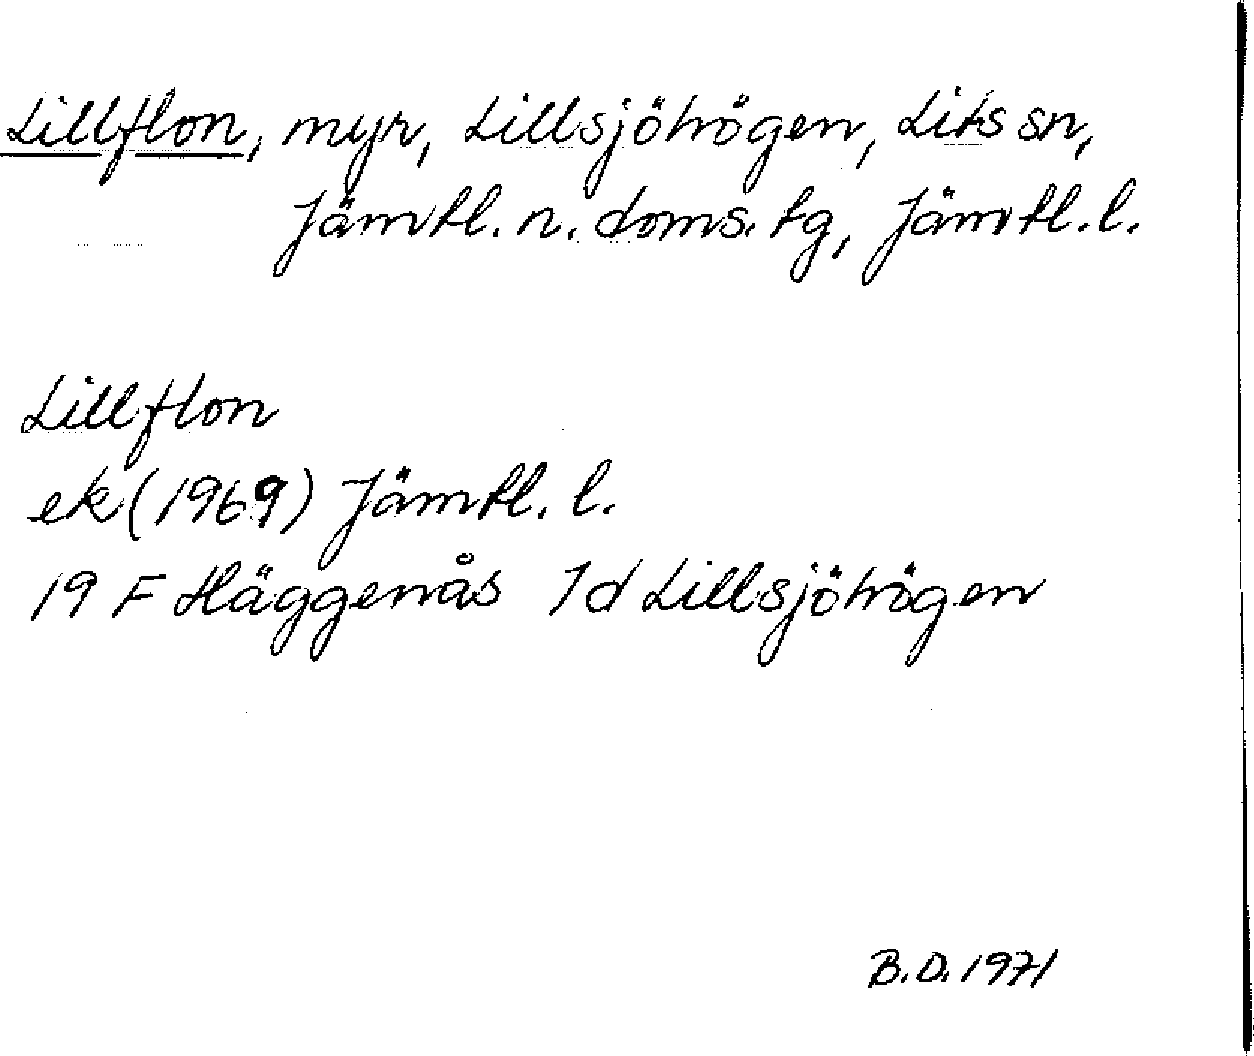 Lillflon, myr, Lillsjöhögen, Lits sn,
Jämtl. n. doms. tg, Jämtl. l.
Lillflon
ek (1969) Jämtl. l.
19 F Häggenås 1d Lillsjöhögen
B.D. 1971